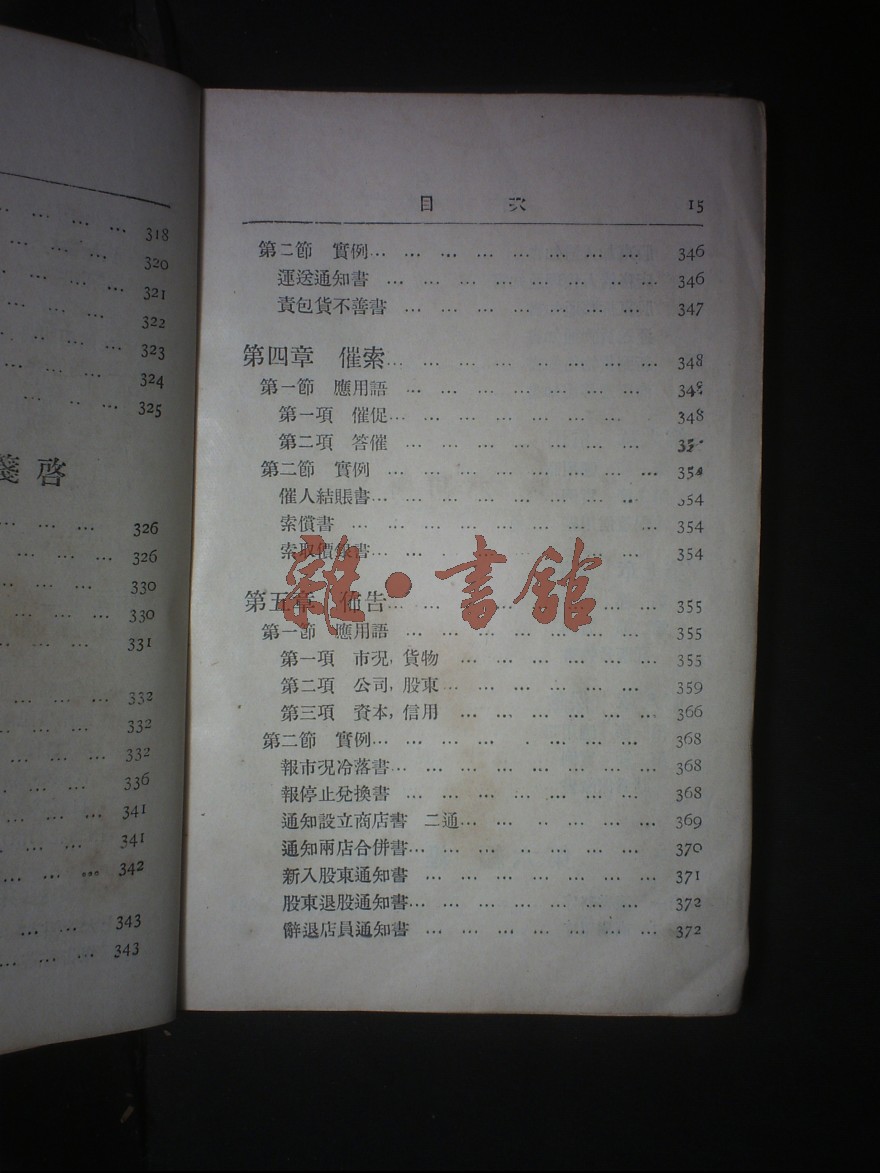 318
320
321
322
323
324
325
箋啓
326
326
330
330
331
332
332
332
336
341
341
342
343
343
目 次 15
第二節 實例 346
運送通知書 346
責包貨不善書 347
第四章 催索 348
第一節 應用語 348
第一項 催促 348
第二項 答催
第二節 實例 354
催人結賬書 354
索償書 354
索取價錄書 354
第五章 佈告 355
第一節 應用語 355
第一項 市况,貨物 355
第二項 公司,股東 359
第三項 資本,信用 366
第二節 實例 368
報市况冷落書 368
報停止兌換書 368
通知設立商店書 二通 369
通知兩店合併書 370
新入股東通知書 371
股東退股通知書 372
辭退店員通知書 372
雜·書館